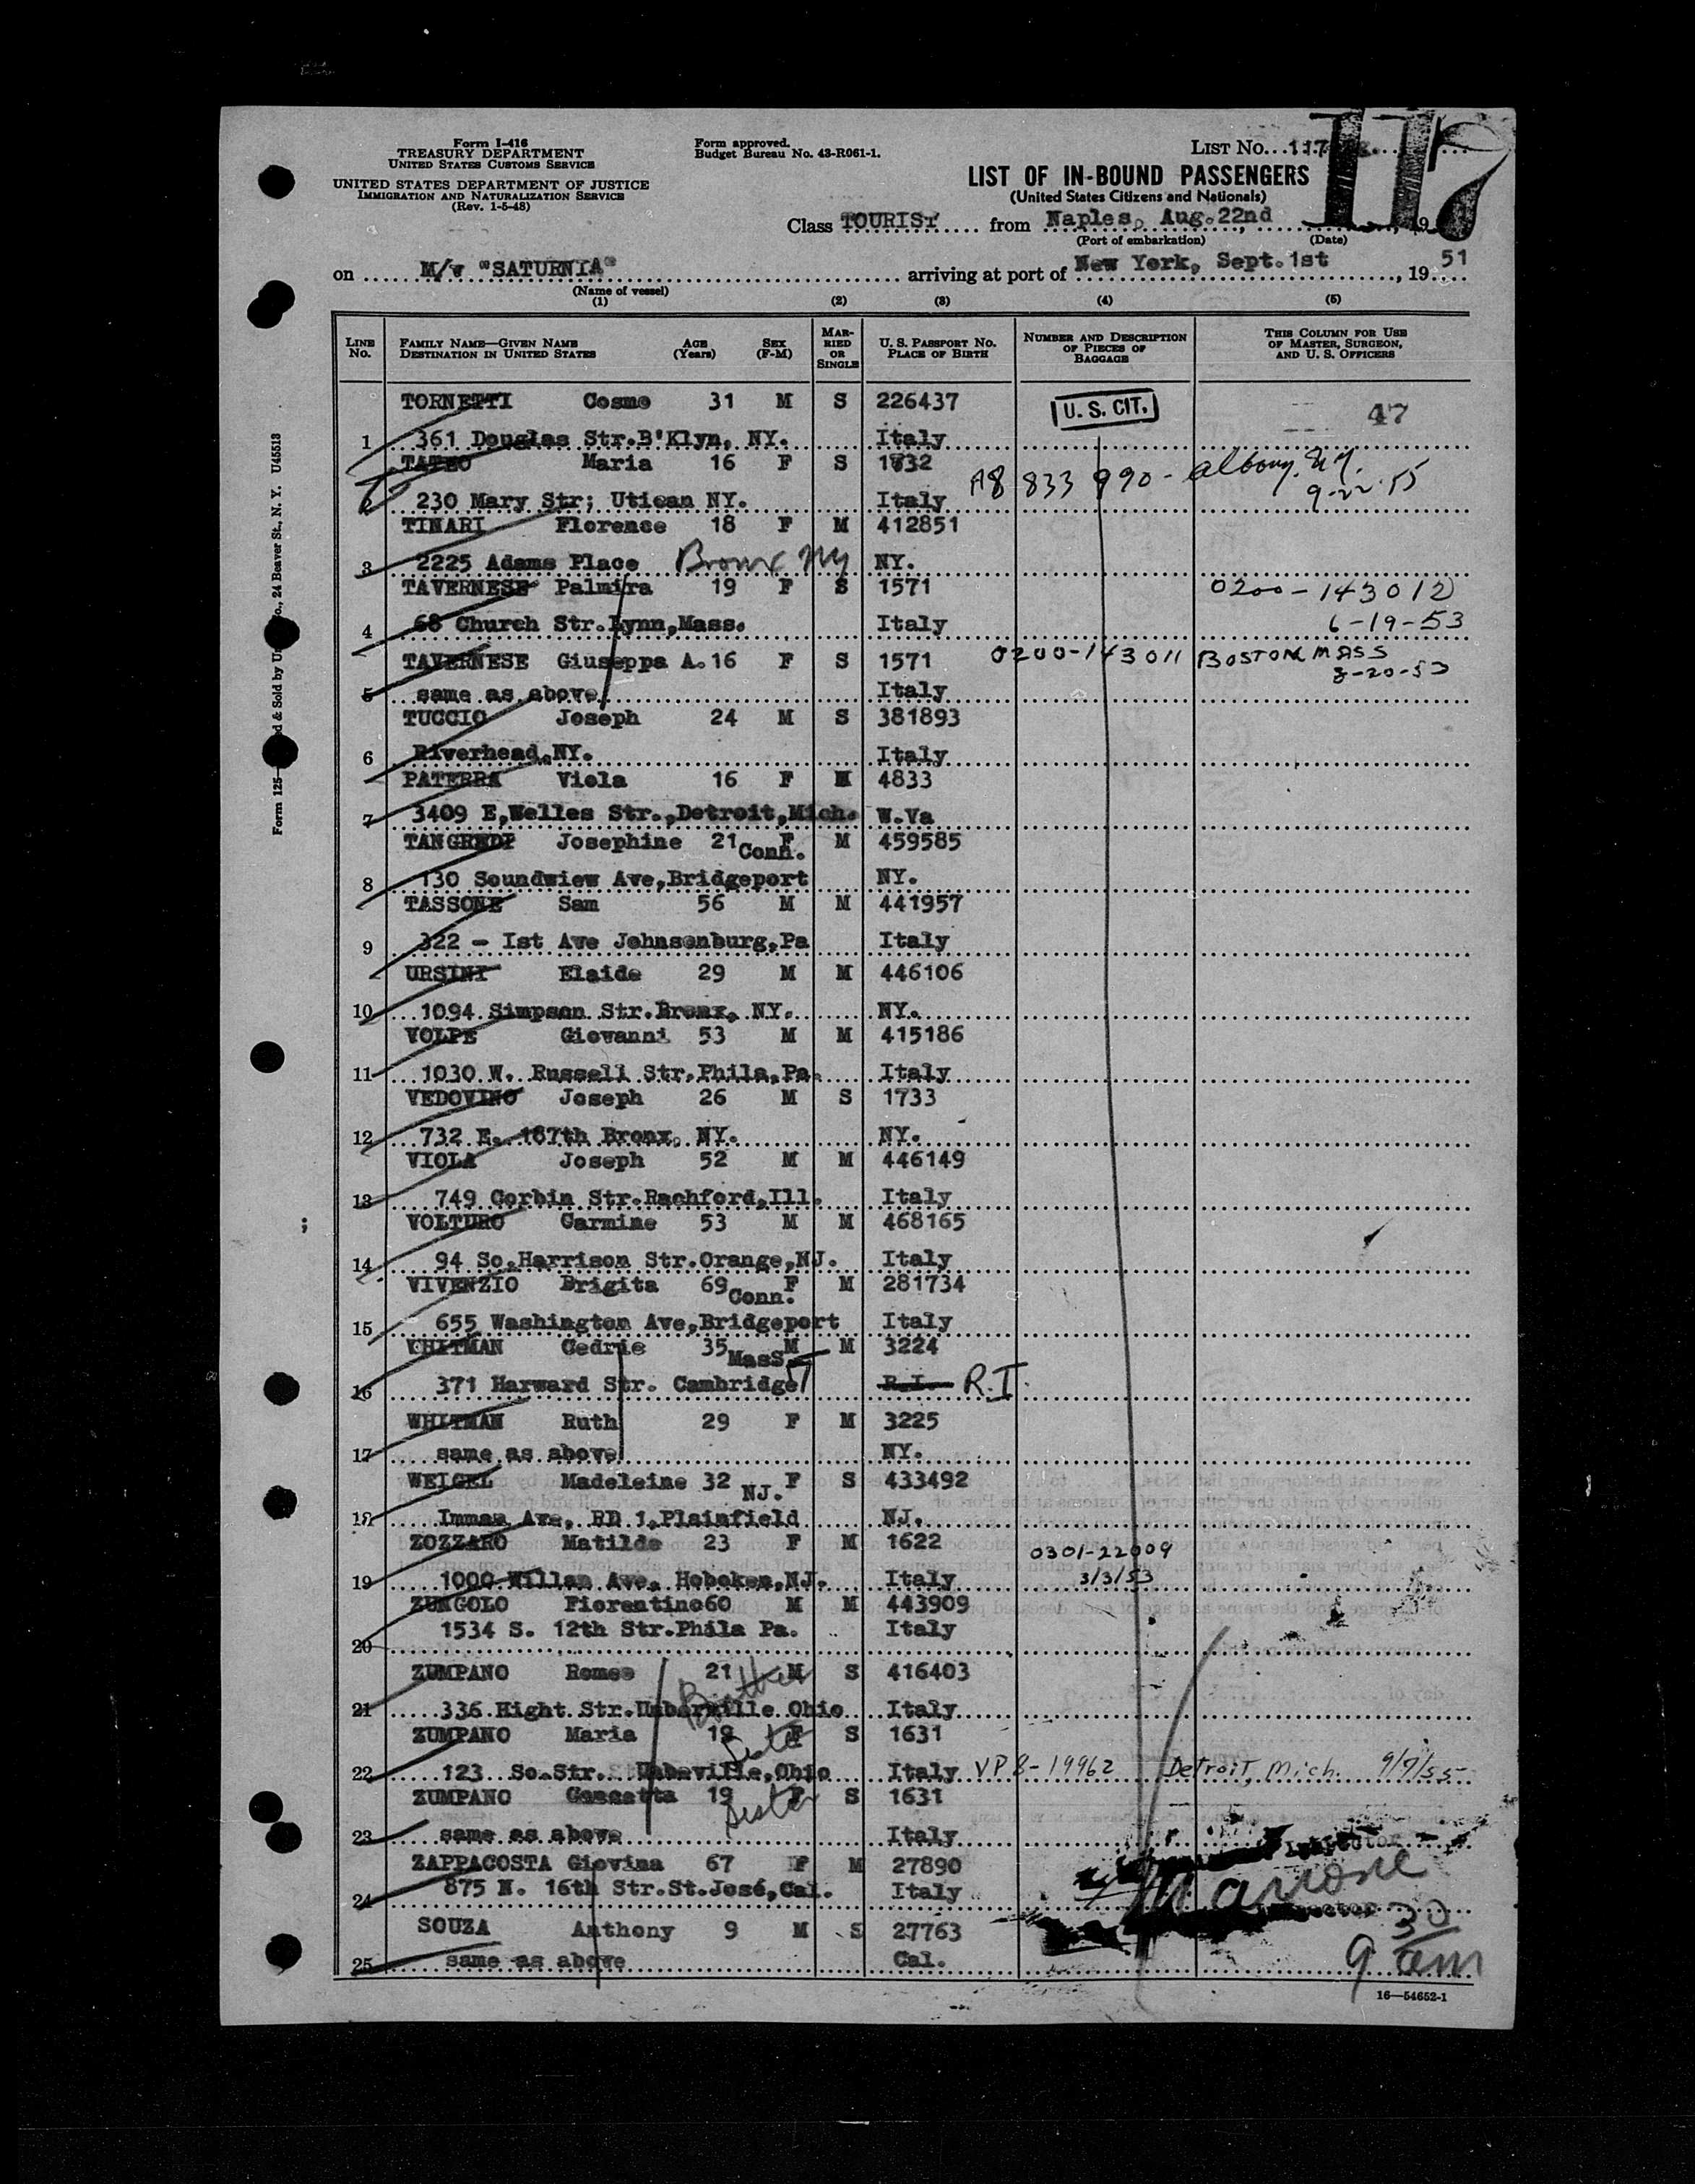 Form I-416
TREASURY DEPARTMENT
UNITED STATES CUSTOMS SERVICE
UNITED STATES DEPARTMENT OF JUSTICE
IMMIGRATION AND NATURALIZATION SERVICE
(Rev. 1-5-48)
Form approved.
Budget Bureau No. 43-R061-1.
LIST NO. 117
117
LIST OF IN-BOUND PASSENGERS
(United States Citizens and Nationals)
Class TOURIST from Naples, Aug. 22nd, 19
(Port of embarkation) (Date)
on M/v "SATURNIA" arriving at port of New York, Sept. 1st, 19 51
(Name of vessel)
(1) (2) (3) (4) (5)
LINE NO. FAMILY NAME—GIVEN NAME DESTINATION IN UNITED STATES AGE (Years) SEX (F-M) MARRIED OR SINGLE U. S. PASSPORT NO. PLACE OF BIRTH NUMBER AND DESCRIPTION OF PIECES OF BAGGAGE THIS COLUMN FOR USE OF MASTER, SURGEON, AND U. S. OFFICERS
TORNETTI Cosmo 31 M S 226437 U. S. CIT. 47
1 361 Douglas Str.B'Klyn, NY. Italy
TATEO Maria 16 F S 1832 A8 833 990 - Albany, N.Y.
2 230 Mary Str; Utican NY. Italy 9-22-55
TINARI Florence 18 F M 412851
3 2225 Adams Place Bronx NY NY.
TAVERNESE Palmira 19 F S 1571 0200-143012
4 68 Church Str.Lynn,Mass. Italy 6-19-53
TAVERNESE Giuseppa A. 16 F S 1571 0200-143011 BOSTON MASS
5 same as above Italy 8-20-53
TUCCIO Joseph 24 M S 381893
6 Riverhead,NY. Italy
PATERRA Viola 16 F M 4833
7 3409 E,Welles Str.,Detroit,Mich. W.Va
TANGREDI Josephine 21 Conn. F M 459585
8 130 Soundwiew Ave,Bridgeport NY.
TASSONE Sam 56 M M 441957
9 322 - Ist Ave Johnsonburg,Pa Italy
URSINI Elaide 29 M M 446106
10 1094 Simpson Str.Bronx, NY. NY.
VOLPE Giovanni 53 M M 415186
11 1030 W. Russell Str.Phila,Pa. Italy
VEDOVINO Joseph 26 M S 1733
12 732 E. 187th Bronx, NY. NY.
VIOLA Joseph 52 M M 446149
13 749 Corbin Str.Rachford,Ill. Italy
VOLTURO Carmine 53 M M 468165
14 94 So.Harrison Str.Orange,NJ. Italy
VIVENZIO Brigita 69 Conn. F M 281734
15 655 Washington Ave,Bridgeport Italy
WHITMAN Cedric 35 Mass M M 3224
16 371 Harward Str. Cambridge R.I. R.I.
WHITMAN Ruth 29 F M 3225
17 same as above NY.
WEIGEL Madeleine 32 NJ. F S 433492
Inman Ave, RD 1,Plainfield NJ.
ZOZZARO Matilde 23 F M 1622 0301-22009
19 1000 Willan Ave, Hoboken,NJ. Italy 3/3/53
ZUNGOLO Fiorentino 60 M M 443909
1534 S. 12th Str.Phila Pa. Italy
20
ZUMPANO Romeo 21 M S 416403
Brother
21 336 Hight Str. Ohio Italy
ZUMPANO Maria 19 F S 1631
Sister
22 123 So.Str. Ohio Italy VP 8-19962 Detroit, Mich. 9/7/55
ZUMPANO 19 F S 1631
Sister
23 same as above Italy
ZAPPACOSTA Giovina 67 F M 27890 Inspector
875 N. 16th Str.St.José,Cal. Italy
24
SOUZA Anthony 9 M S 27763 9 30 am
25 same as above Cal.
16—54652-1
24 Beaver St., N. Y. U45513